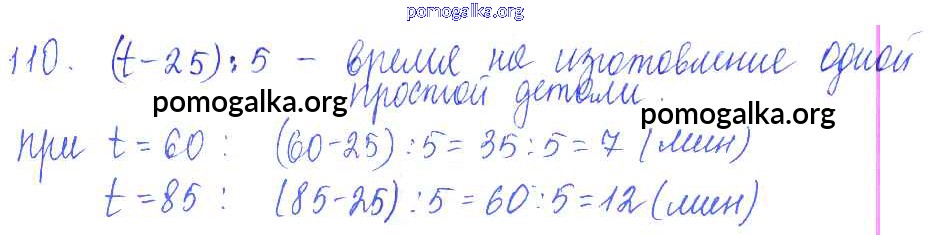 pomogalka.org
110. (t-25):5 - время на изготовление одной
простой детали.
pomogalka.org pomogalka.org
при t=60: (60-25):5=35:5=7 (мин)
t=85: (85-25):5=60:5=12 (мин)